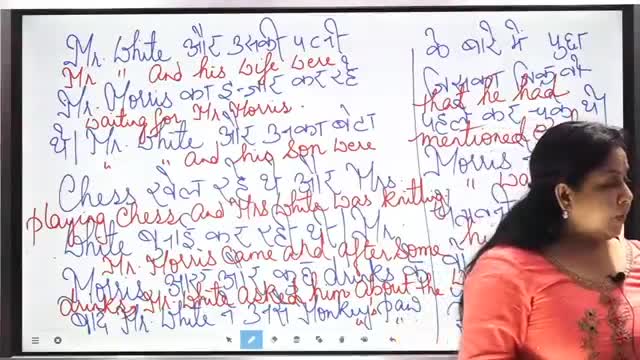 Mr. White और उसकी पत्नी
Mr. " And his wife were
Mr. Morris का इन्तजार कर रहे
waiting for Mr. Morris.
थे। Mr. White और उनका बेटा
" " And his son were
Chess खेल रहे थे और Mrs
playing chess and Mrs White was knitting
White बुनाई कर रही थी। Mr.
Mr. Morris came and after some
Morris आए और कुछ drinks के
drinks Mr White asked him about the
बाद Mr. White ने उनसे Monkey's paw
के बारे में पूछा
जिसका जिक्र वो
had he had
पहले कर चुके थे।
mentioned
Morris
"